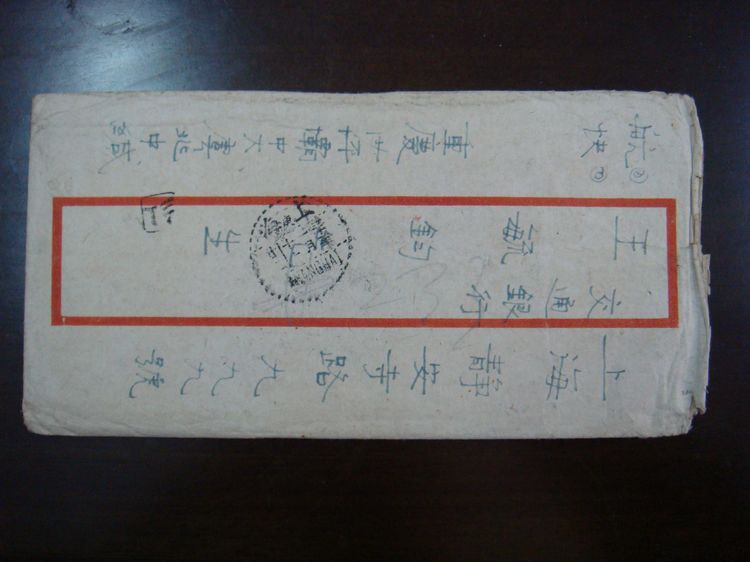 上海靜安寺路九九九號
交通銀行
王毓鈞先生
航快
重慶沙坪壩中大北中緘
上海
SHANGHAI